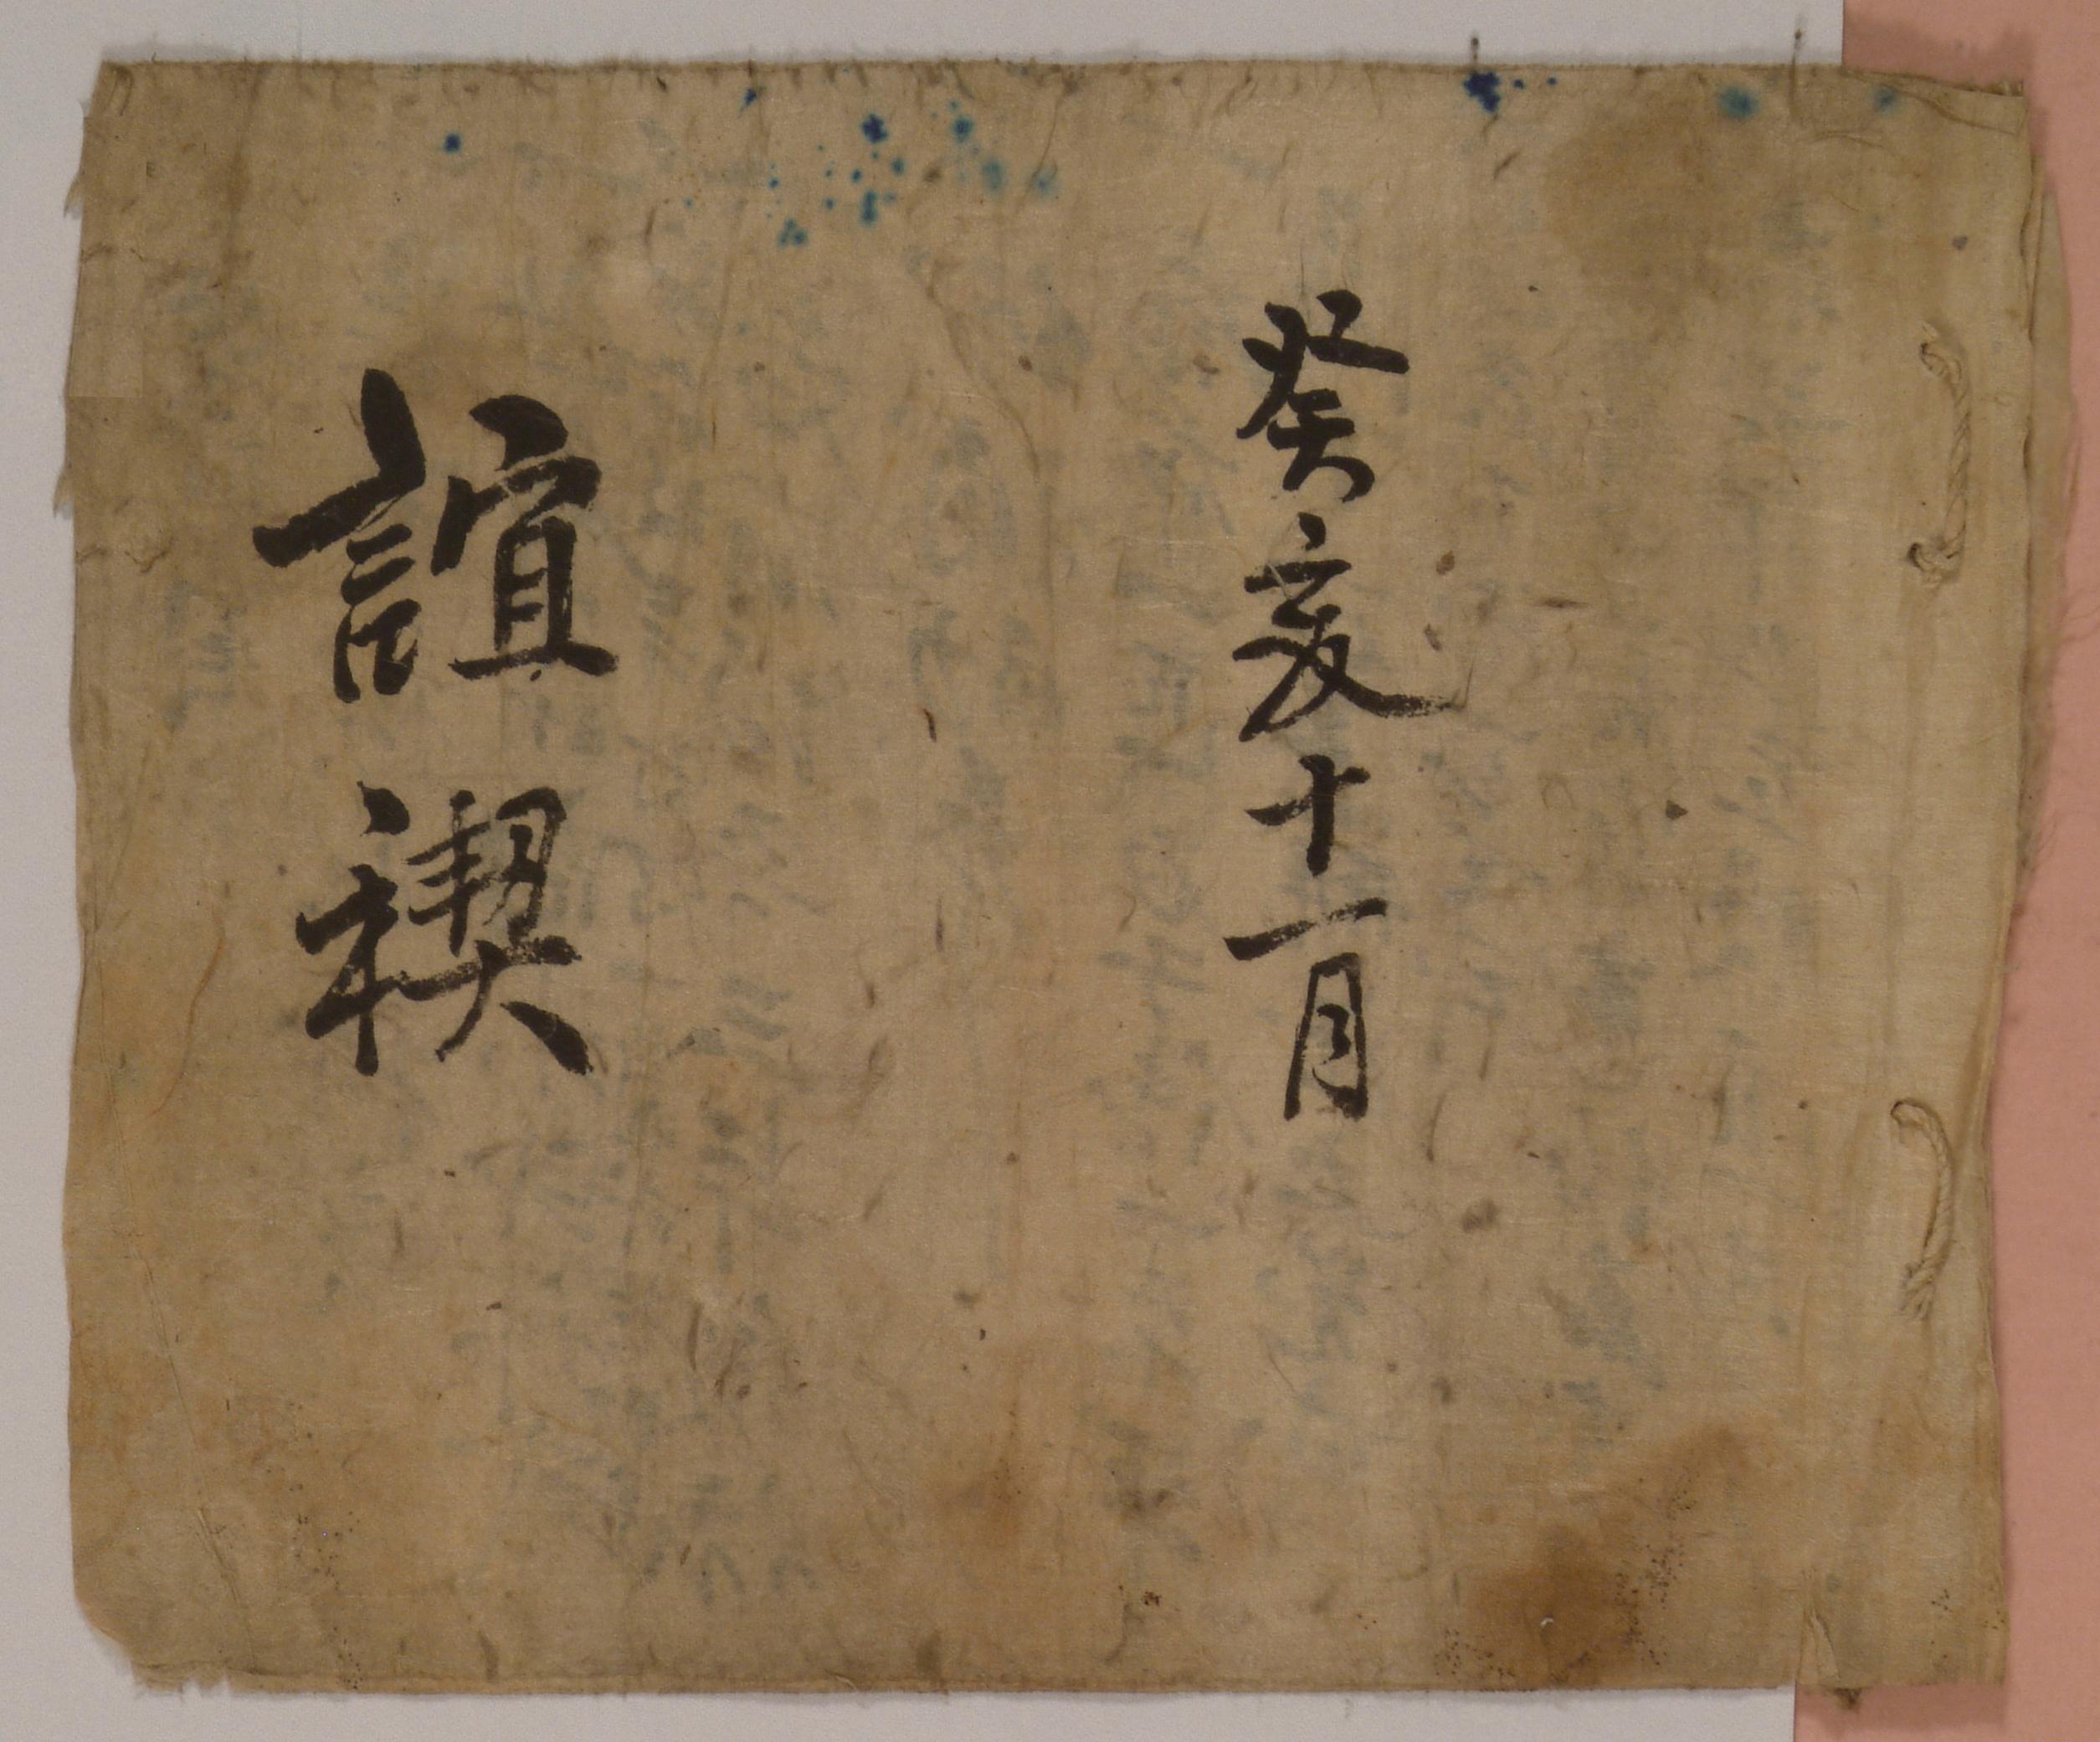 癸亥十一月
誼禊